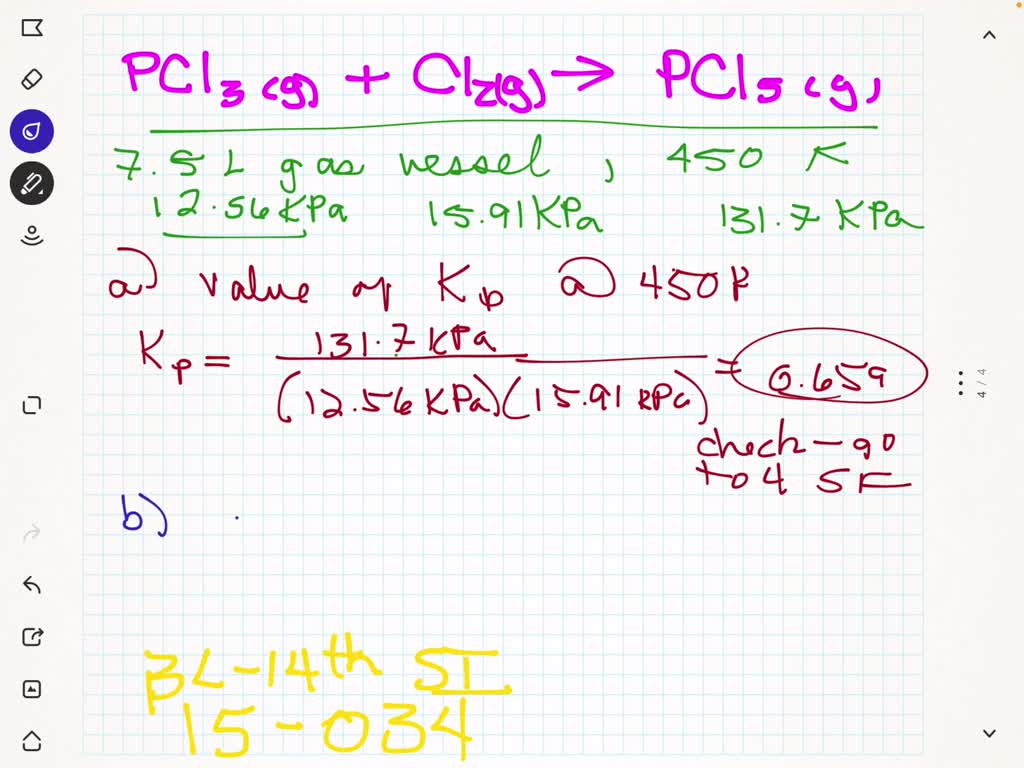 PCl3 (g) + Cl2(g) → PCl5 (g)
7.5 L gas vessel, 450 K
12.56 KPa 15.91 KPa 131.7 KPa
a) value of Kp @ 450 K
Kp = 131.7 KPa / (12.56 KPa)(15.91 KPa) = 0.659
check - go
to 4 SF
b)
BL-14th ST
15-034
4/4